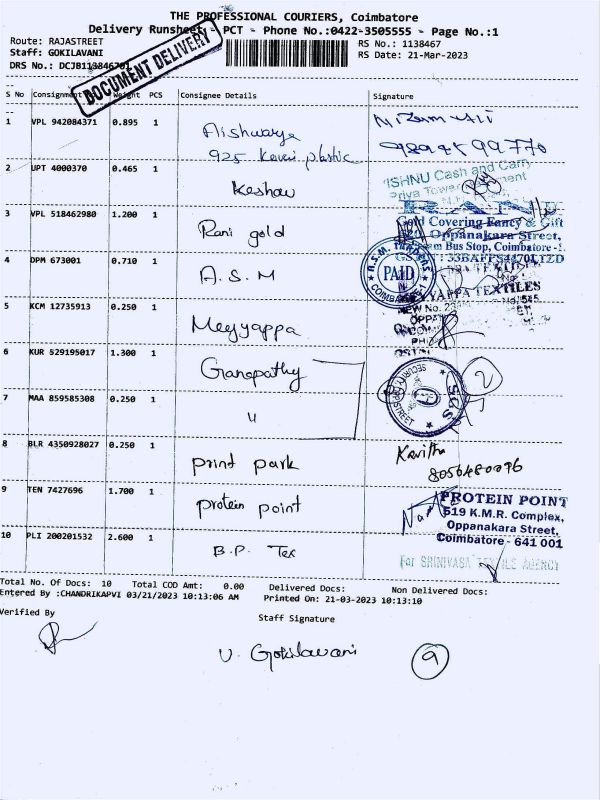 THE PROFESSIONAL COURIERS, Coimbatore
Delivery Runsheet - PCT - Phone No.:0422-3505555 - Page No.:1
Route: RAJASTREET
RS No.: 1138467
Staff: GOKILAVANI
RS Date: 21-Mar-2023
DRS No.: DCJB113846701
DOCUMENT DELIVERY
S No Consignment Weight PCS Consignee Details Signature
1 VPL 942084371 0.895 1 Aishwarya
925 Kaveri plastic
2 UPT 4000370 0.465 1 Keshav
ISHNU Cash and Carry
3 VPL 518462980 1.200 1 Rani gold
Gold Covering Fancy & Gift
Oppanakara Street,
Bus Stop, Coimbatore -
4 DPM 673001 0.710 1 A.S.M
PAID
5 KCM 12735913 0.250 1 Meyyappa
TEXTILES
6 KUR 529195017 1.300 1 Ganapathy
7 MAA 859585308 0.250 1 "
SECURITY
2
8 BLR 4350928027 0.250 1 print park Kavitha
8056480096
9 TEN 7427696 1.700 1 protein point
PROTEIN POINT
519 K.M.R. Complex,
Oppanakara Street,
Coimbatore - 641 001
10 PLI 200201532 2.600 1 B.P. Tex
For SRINIVASA TEXTILE AGENCY
Total No. Of Docs: 10 Total COD Amt: 0.00 Delivered Docs: Non Delivered Docs:
Entered By :CHANDRIKAPVI 03/21/2023 10:13:06 AM Printed On: 21-03-2023 10:13:10
Verified By
Staff Signature
V. Gokilavani
9